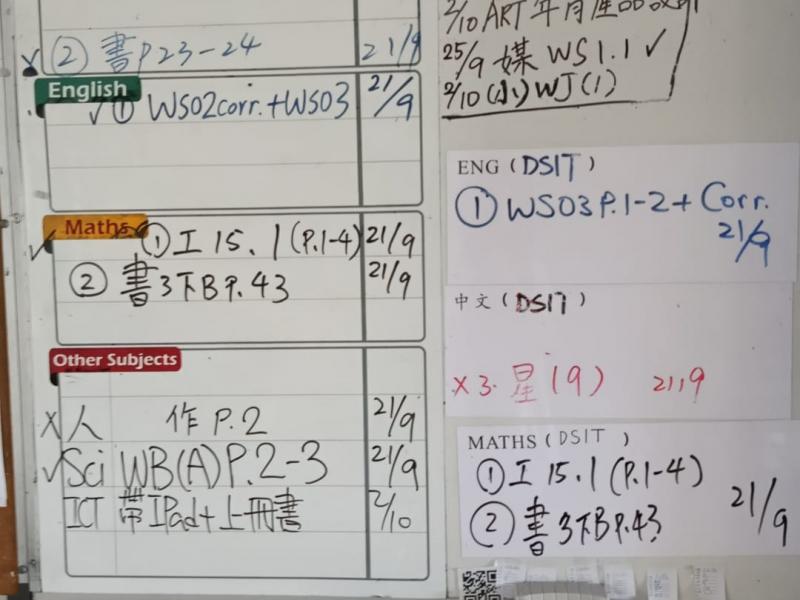 ② 書 P 23-24 21/9
English
✓ ① WS02 corr. + WS03 21/9
Maths
✓ ① 工 15.1 (P.1-4) 21/9
② 書 3下B P.43 21/9
Other Subjects
X 人 作 P.2 21/9
✓ Sci WB(A) P.2-3 21/9
ICT 帶 IPad + 上冊書 2/10
2/10 ART 年月
25/9 媒 WS 1.1 ✓
2/10 (小) WJ(1)
ENG (DSIT)
① WS03 P.1-2 + Corr.
21/9
中文 (DSIT)
X 3. 星 (9) 21,9
MATHS (DSIT)
① 工 15.1 (P.1-4)
② 書 3下B P.43 21/9